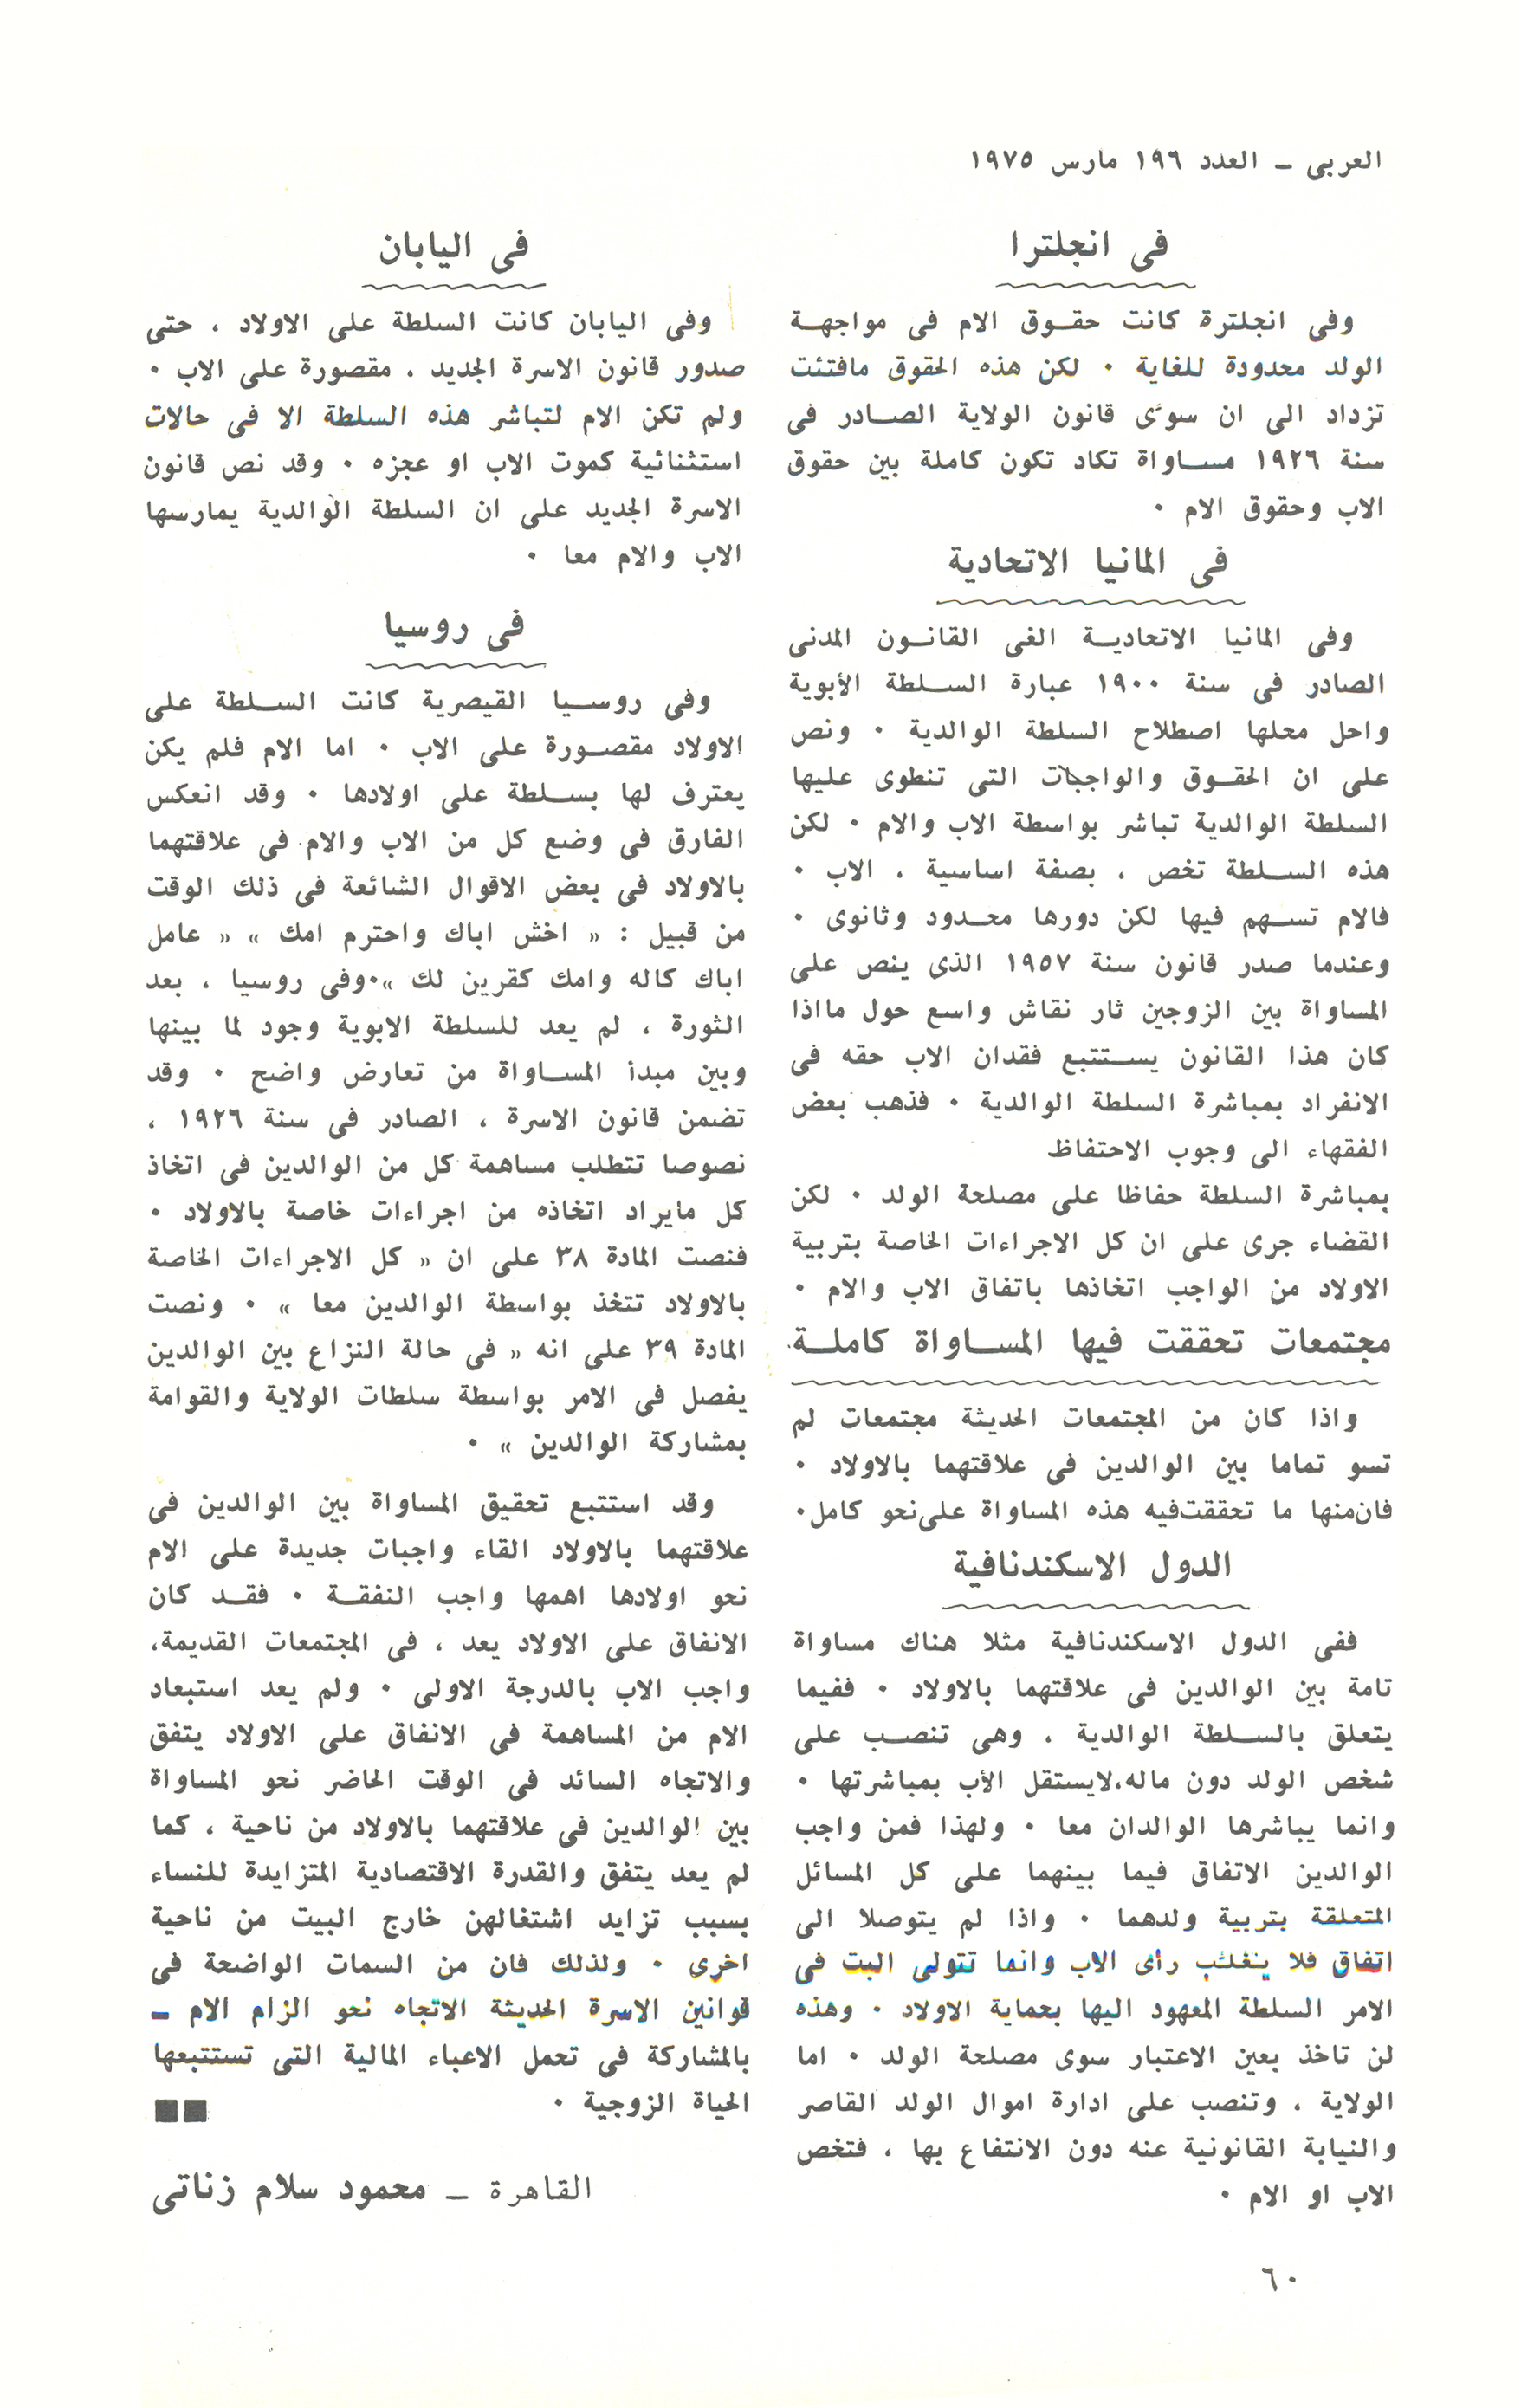 العربى ــ العدد ١٩٦ مارس ١٩٧٥
فى انجلترا
وفى انجلترة كانت حقـوق الام فى مواجهـة
الولد محدودة للغاية ٠ لكن هذه الحقوق مافتئت
تزداد الى ان سوّى قانون الولاية الصـادر فى
سنة ١٩٢٦ مسـاواة تكاد تكون كاملة بين حقوق
الاب وحقوق الام ٠
فى المانيا الاتحادية
وفى المانيا الاتحاديـة الغى القانـون المدنى
الصادر فى سنة ١٩٠٠ عبارة السـلطة الأبوية
واحل محلها اصطلاح السلطة الوالدية ٠ ونص
على ان الحقـوق والواجبات التى تنطوى عليها
السلطة الوالدية تباشر بواسطة الاب والام ٠ لكن
هذه السـلطة تخص ، بصفة اساسية ، الاب ٠
فالام تسـهم فيها لكن دورها محـدود وثانوى ٠
وعندما صدر قانون سنة ١٩٥٧ الذى ينص على
المساواة بين الزوجين ثار نقاش واسع حول مااذا
كان هذا القانون يسـتتبع فقدان الاب حقه فى
الانفراد بمباشرة السلطة الوالدية ٠ فذهب بعض
الفقهاء الى وجوب الاحتفاظ
بمباشرة السلطة حفاظا على مصلحة الولد ٠ لكن
القضاء جرى على ان كل الاجراءات الخاصة بتربية
الاولاد من الواجب اتخاذها باتفاق الاب والام ٠
مجتمعات تحققت فيها المسـاواة كاملـة
واذا كان من المجتمعات الحديثة مجتمعات لم
تسو تماما بين الوالدين فى علاقتهما بالاولاد ٠
فان منها ما تحققت فيه هذه المساواة على نحو كامل ٠
الدول الاسكندنافية
ففى الدول الاسكندنافية مثلا هناك مساواة
تامة بين الوالدين فى علاقتهما بالاولاد ٠ ففيما
يتعلق بالسـلطة الوالدية ، وهى تنصـب على
شخص الولد دون ماله، لايستقل الأب بمباشرتها ٠
وانما يباشرها الوالدان معا ٠ ولهذا فمن واجب
الوالدين الاتفاق فيما بينهما على كل المسائل
المتعلقة بتربية ولدهما ٠ واذا لم يتوصلا الى
اتفاق فلا يغلب رأى الاب وانما تتولى البت فى
الامر السلطة المعهود اليها بحماية الاولاد ٠ وهذه
لن تاخذ بعين الاعتبار سوى مصلحة الولد ٠ اما
الولاية ، وتنصب على ادارة اموال الولد القاصر
والنيابة القانونية عنه دون الانتفاع بها ، فتخص
الاب او الام ٠
فى اليابان
وفى اليابان كانت السلطة على الاولاد ، حتى
صدور قانون الاسرة الجديد ، مقصورة على الاب ٠
ولم تكن الام لتباشر هذه السلطة الا فى حالات
استثنائية كموت الاب او عجزه ٠ وقد نص قانون
الاسرة الجديد على ان السلطة الوالدية يمارسها
الاب والام معا ٠
فى روسيا
وفى روسـيا القيصرية كانت السـلطة على
الاولاد مقصـورة على الاب ٠ اما الام فلم يكن
يعترف لها بسـلطة على اولادها ٠ وقد انعكس
الفارق فى وضع كل من الاب والام فى علاقتهما
بالاولاد فى بعض الاقوال الشائعة فى ذلك الوقت
من قبيل : « اخش اباك واحترم امك » « عامل
اباك كاله وامك كقرين لك »٠ وفى روسيا ، بعد
الثورة ، لم يعد للسلطة الابوية وجود لما بينها
وبين مبدأ المسـاواة من تعارض واضح ٠ وقد
تضمن قانون الاسرة ، الصادر فى سنة ١٩٢٦ ،
نصوصا تتطلب مساهمة كل من الوالدين فى اتخاذ
كل مايراد اتخاذه من اجراءات خاصة بالاولاد ٠
فنصت المادة ٣٨ على ان « كل الاجراءات الخاصة
بالاولاد تتخذ بواسطة الوالدين معا » ٠ ونصت
المادة ٣٩ على انه « فى حالة النزاع بين الوالدين
يفصل فى الامر بواسطة سلطات الولاية والقوامة
بمشاركة الوالدين » ٠
وقد استتبع تحقيق المساواة بين الوالدين فى
علاقتهما بالاولاد القاء واجبات جديدة على الام
نحو اولادها اهمها واجب النفقـة ٠ فقـد كان
الانفاق على الاولاد يعد ، فى المجتمعات القديمة،
واجب الاب بالدرجة الاولى ٠ ولم يعد استبعاد
الام من المساهمة فى الانفاق على الاولاد يتفق
والاتجاه السائد فى الوقت الحاضر نحو المساواة
بين الوالدين فى علاقتهما بالاولاد من ناحية ، كما
لم يعد يتفق والقدرة الاقتصادية المتزايدة للنساء
بسبب تزايد اشتغالهن خارج البيت من ناحية
اخرى ٠ ولذلك فان من السمات الواضحة فى
قوانين الاسرة الحديثة الاتجاه نحو الزام الام ــ
بالمشاركة فى تحمل الاعباء المالية التى تستتبعها
الحياة الزوجية ٠
القاهرة ــ محمود سلام زناتى
٦٠